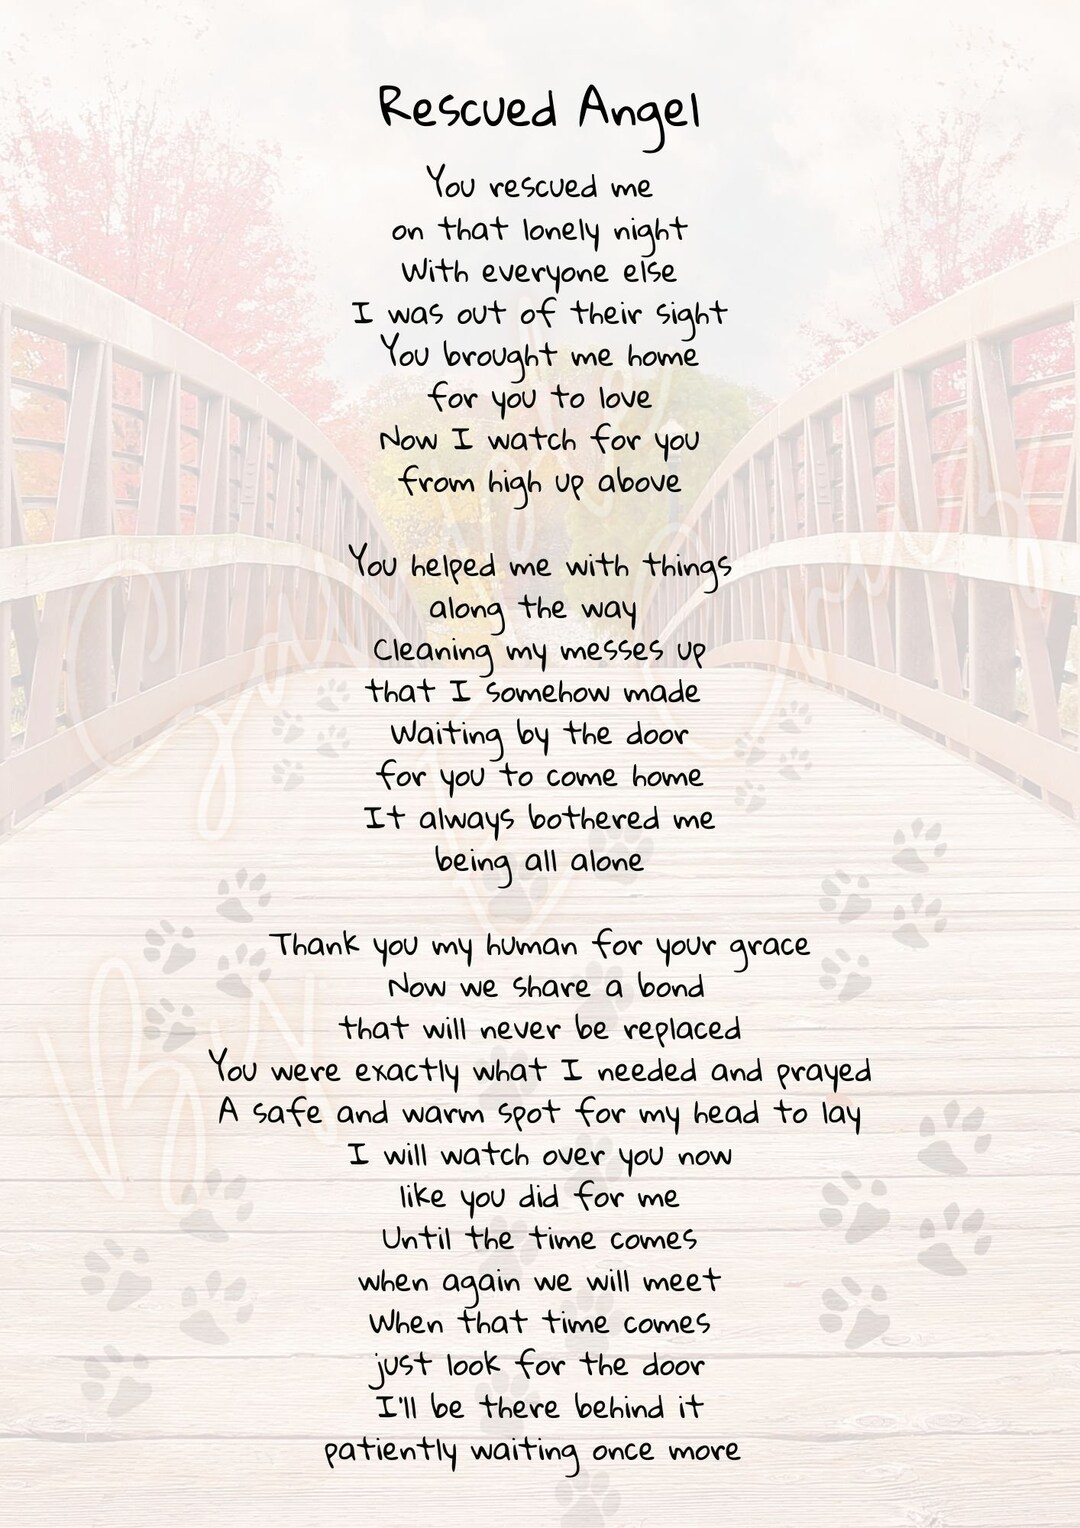 Rescued Angel
You rescued me
on that lonely night
With everyone else
I was out of their sight
You brought me home
for you to love
Now I watch for you
from high up above
You helped me with things
along the way
Cleaning my messes up
that I somehow made
Waiting by the door
for you to come home
It always bothered me
being all alone
Thank you my human for your grace
Now we share a bond
that will never be replaced
You were exactly what I needed and prayed
A safe and warm spot for my head to lay
I will watch over you now
like you did for me
Until the time comes
when again we will meet
When that time comes
just look for the door
I'll be there behind it
patiently waiting once more